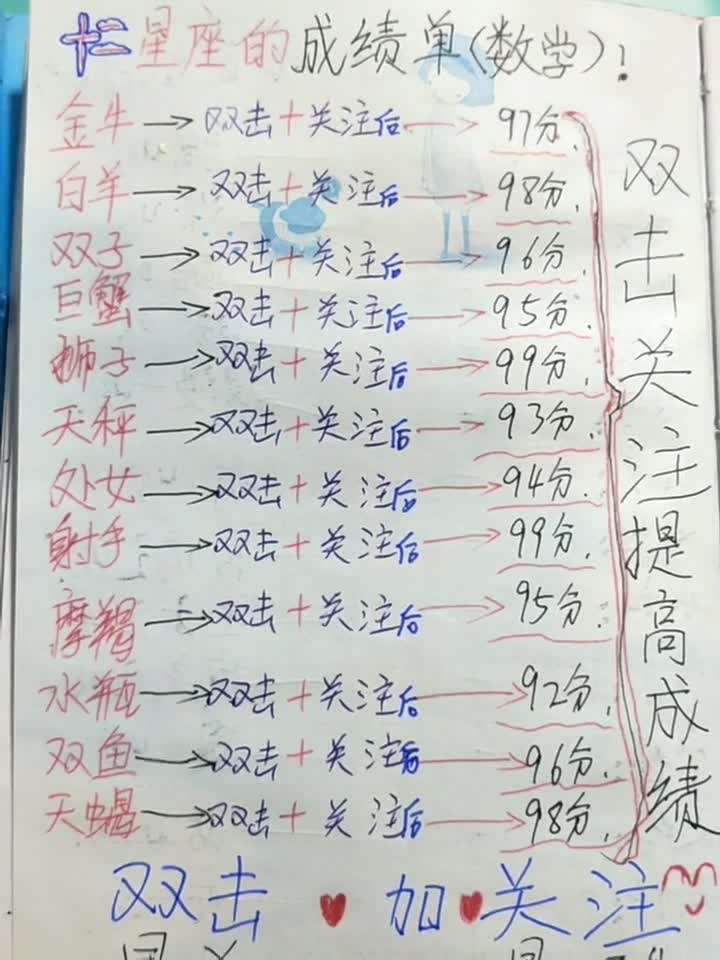 十二星座的成绩单(数学)!
金牛→双击+关注后→97分.
白羊→双击+关注后→98分.
双子→双击+关注后→96分.
巨蟹→双击+关注后→95分.
狮子→双击+关注后→99分.
天秤→双击+关注后→93分.
处女→双击+关注后→94分.
射手→双击+关注后→99分.
摩羯→双击+关注后→95分.
水瓶→双击+关注后→92分.
双鱼→双击+关注后→96分.
天蝎→双击+关注后→98分.
双击关注提高成绩
双击❤加❤关注